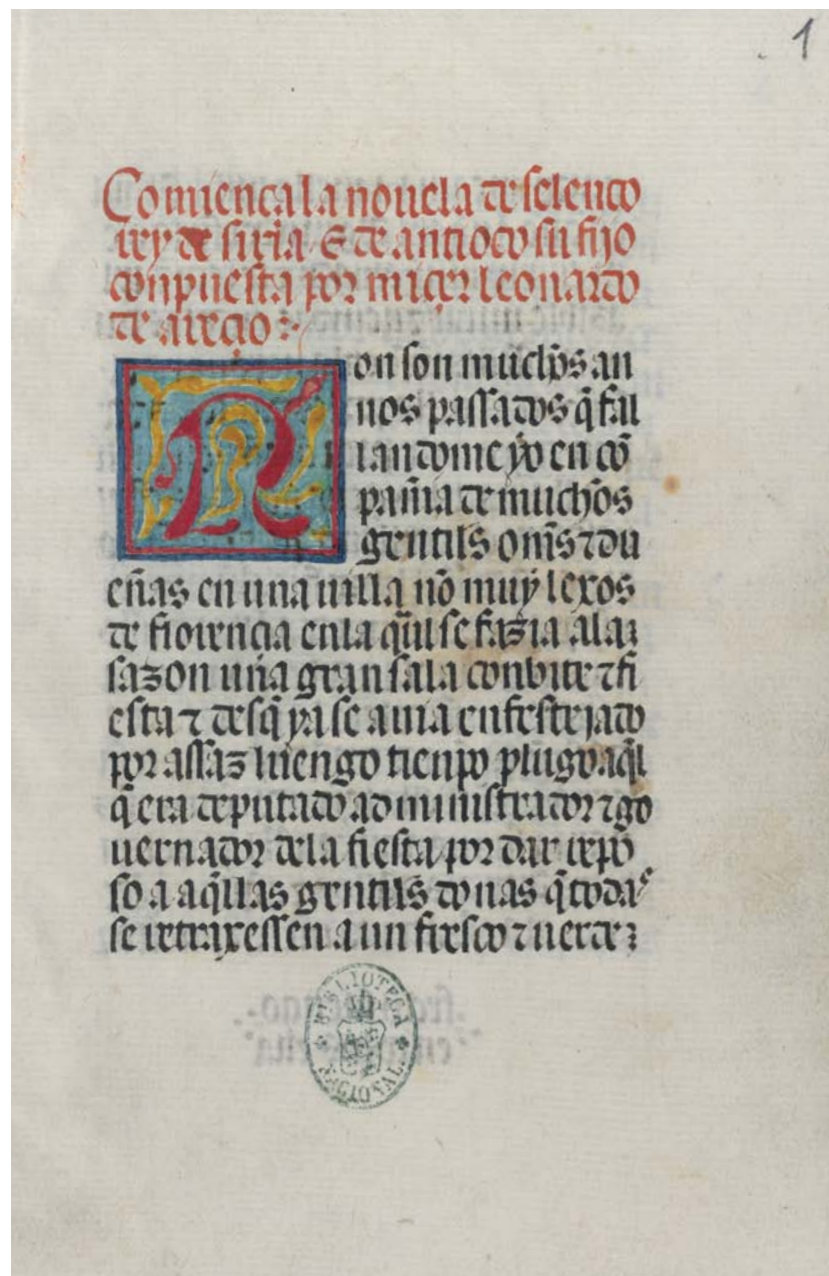 1
Comiença la nouela de seleuco
rey de siria / E de antioco su fijo
conpuesta por miçer leonardo
de arecio :·
Non son muchos an
nos passados q̃ fal
landome yo en cõ
pañia de muchos
gentils om̃s ⁊ du
eñas en una uilla nõ muy lexos
de florencia en la q̃l se fazia ala
sazon una gran sala conbite ⁊ fi
esta ⁊ desq̃ ya se auia enfestejado
por assaz luengo tienpo plugo aq̃l
q̃ era deputado administrador ⁊ go
uernador dela fiesta por dar repo
so a aq̃llas gentils donas q̃ todas
se retraxessen a un fresco ⁊ uerde
BIBLIOTECA NACIONAL